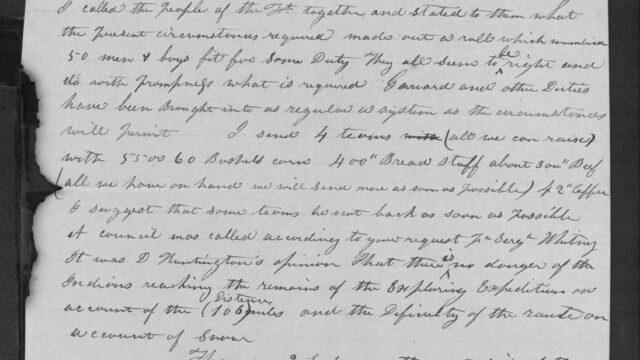 I called the people of the Ft. together and stated to them what
the present circumstances required made out a roll which numbered
50 men & boys fit for some Duty They all seem to be right and
do with prompness what is required Garuard and other Duties
have been brought into as regular a system as the circumstances
will permit I send 4 teams with (all we can raise)
with 60 Bushels corn 400" Bread stuff about 300" Beef
(all we have on hand we will send more as soon as possible)
& suggest that some teams be sent back as soon as possible
A council was called according to your request pr Sergt Whitney
It was D Huntington's opinion that there is no danger of the
Indians reaching the remains of the Exploring Expedition on
account of the Distance (106 miles and the Difficulty of the route on
account of Snow